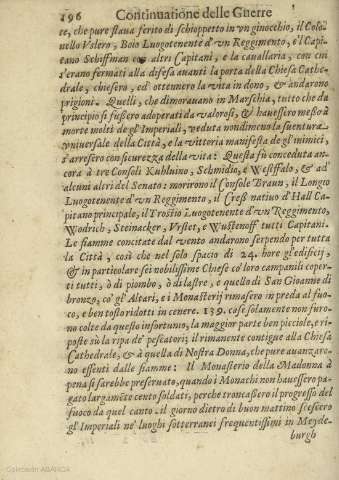 196 Continuatione delle Guerre
te, che pure staua ferito di schioppetto in vn ginocchio, il Colo-
nello Vslero, Boio Luogotenente d'vn Reggimento, e'l Capi-
tano Schiffman con altri Capitani, e la cauallaria, con cui
s'erano fermati alla difesa auanti la porta della Chiesa Cathe-
drale, chiesero, ed ottennero la vita in dono, & andarono
prigioni. Quelli, che dimorauano in Marschia, tutto che da
principio si fussero adoperati da valorosi, & hauessero messo à
morte molti de gl'Imperiali, veduta nondimeno la suentura
vniuersale della Città, e la vittoria manifesta de gl'inimici,
s'arresero con sicurezza della vita: Questa fù conceduta an-
cora à tre Consoli Kuhluino, Schmidio, e Westffalo, & ad'
alcuni altri del Senato: morirono il Console Braun, il Longio
Luogotenente d'vn Reggimento, il Cress natiuo d'Hall Ca-
pitano principale, il Trostio Luogotenente d'vn Reggimento,
Wodrich, Steinacker, Vrslet, e Wustenoff tutti Capitani.
Le fiamme concitate dal vento andarono serpendo per tutta
la Città, così che nel solo spacio di 24. hore gl'edificij,
& in particolare sei nobilissime Chiese co' loro campanili coper-
ti tutti, ò di piombo, ò di lastre, e quello di San Gioanne di
bronzo, co' gl'Altari, e i Monasterij rimasero in preda al fuo-
co, e ben tosto ridotti in cenere. 139. case solamente non furo-
no colte da questo infortunio, la maggior parte ben picciole, e ri-
poste sù la ripa de' pescatori; il rimanente contigue alla Chiesa
Cathedrale, & à quella di Nostra Donna, che pure auanzaro-
no essenti dalle fiamme: Il Monasterio della Madonna à
pena si sarebbe preseruato, quando i Monachi non hauessero pa-
gato largamēte cento soldati, perche troncassero il progresso del
fuoco da quel canto. il giorno dietro di buon mattino scesero
gl'Imperiali ne' luoghi sotterranei frequentissimi in Meyde-
burgh
Colección ABANCA